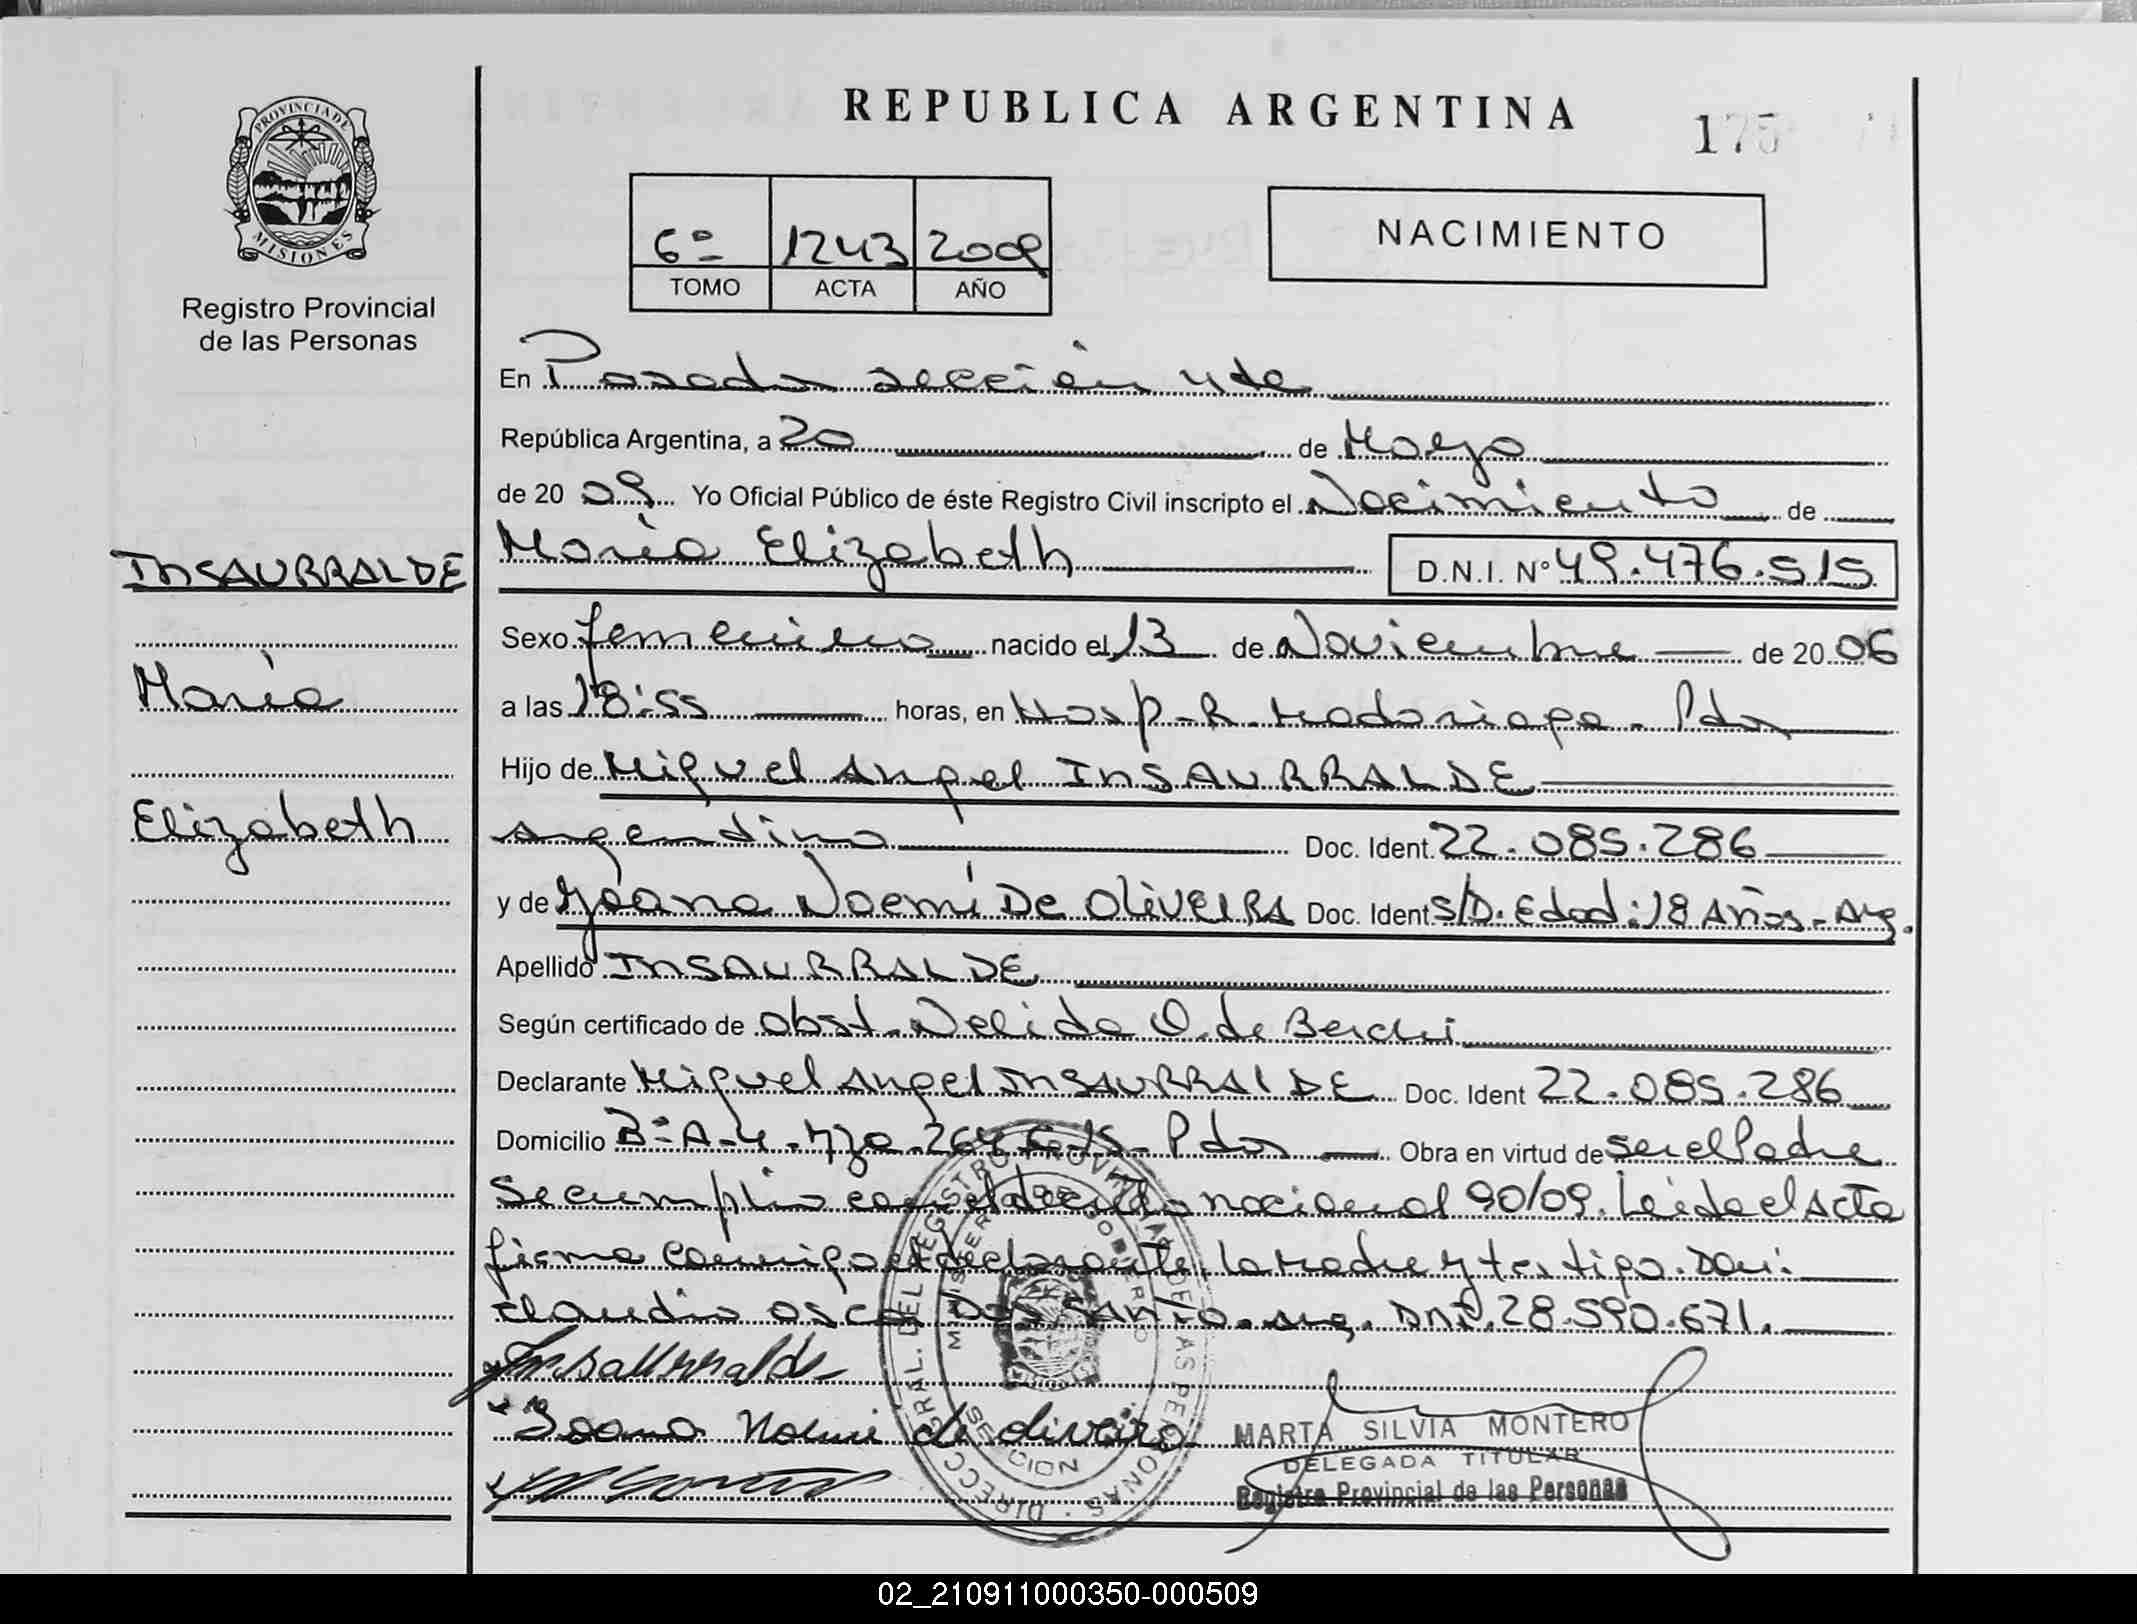 REPUBLICA ARGENTINA
175
PROVINCIA DE MISIONES
Registro Provincial
de las Personas
6º 1243 2009
TOMO ACTA AÑO
NACIMIENTO
En Posadas sección 4ta
República Argentina, a 20 de Mayo
de 2009 Yo Oficial Público de éste Registro Civil inscripto el Nacimiento de
INSAURRALDE
María Elizabeth D.N.I. Nº 49.476.515
Sexo femenino nacido el 13 de Noviembre de 2006
María
a las 18:55 horas, en Hosp. R. Madariaga. Pdas
Hijo de Miguel Angel INSAURRALDE
Elizabeth
Argentino Doc. Ident. 22.085.286
y de Yoana Noemí De OliVEIRA Doc. Ident S/D. Edad: 18 Años - Arg.
Apellido INSAURRALDE
Según certificado de obst. Nelida O. de
Declarante Miguel Angel INSAURRALDE Doc. Ident 22.085.286
Domicilio Bº A-4. Mza. 264 C. 15. Pdas Obra en virtud de ser el Padre
Se cumplio con el decreto nacional 90/09. Leida el Acta
firma conmigo el declarante, la Madre y testigo. Don:
Claudio Osca Dos Santo. Arg. DNI. 28.590.671.
Insaurralde
Yoana Noemi de oliveira
MARTA SILVIA MONTERO
DELEGADA TITULAR
Registro Provincial de las Personas
DIRECC. GRAL. DEL REGISTRO PROVINCIAL DE LAS PERSONAS
MINISTERIO DE GOBIERNO
SECCION
02_210911000350-000509